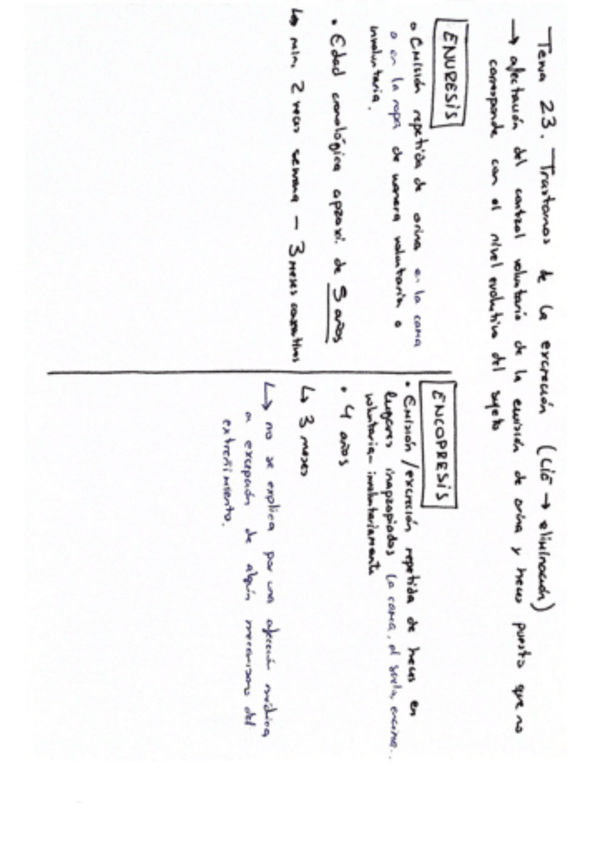 Tema 23. Trastornos de la excreción (CIE → eliminación)
→ afectación del control voluntario de la emisión de orina y heces puesto que no
corresponde con el nivel evolutivo del sujeto
ENURESIS
• Emisión repetida de orina en la cama
o en la ropa de manera voluntaria o
involuntaria.
• Edad cronológica aproxi. de 5 años
↳ min. 2 veces semana - 3 meses consecutivos
ENCOPRESIS
• Emisión/excreción repetida de heces en
lugares inapropiados (a cama, el suelo, encima..
voluntaria - involuntariamente
• 4 años
↳ 3 meses
↳ no se explica por una afección médica
a excepción de algún mecanismo del
extreñimiento.